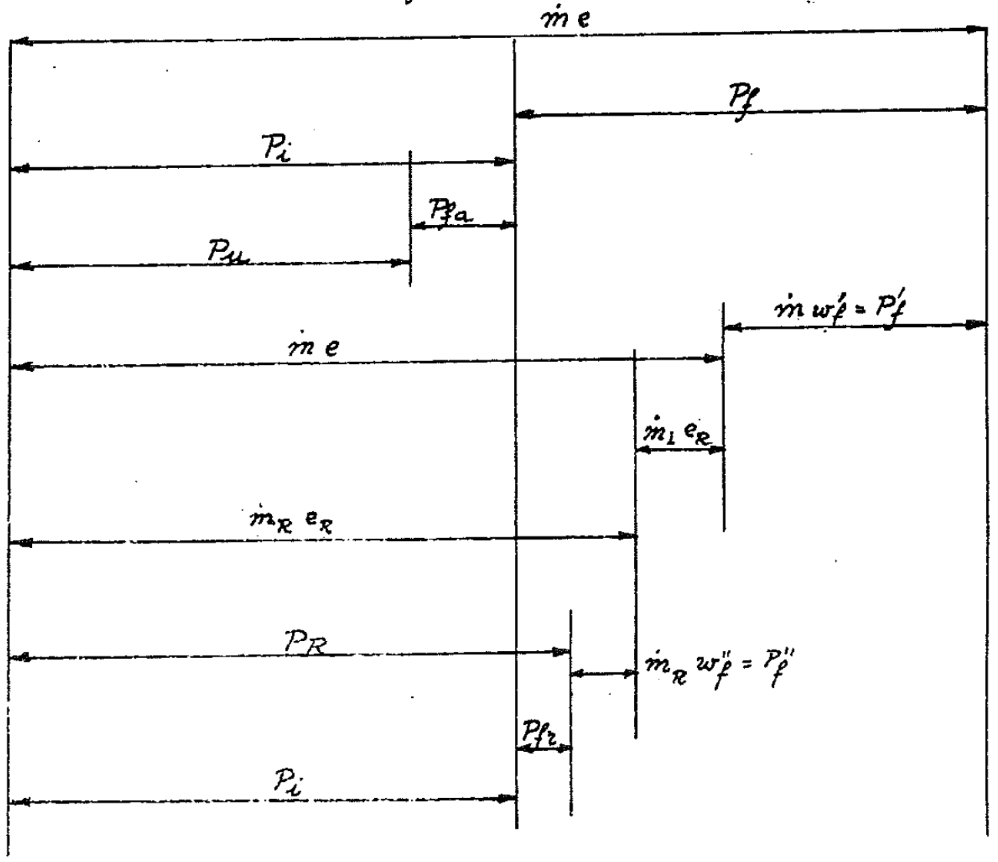 ṁ e
P_f
P_i
P_fa
P_u
ṁ w'_f = P'_f
ṁ e
ṁ_1 e_R
ṁ_R e_R
P_R
ṁ_R w''_f = P''_f
P_fr
P_i